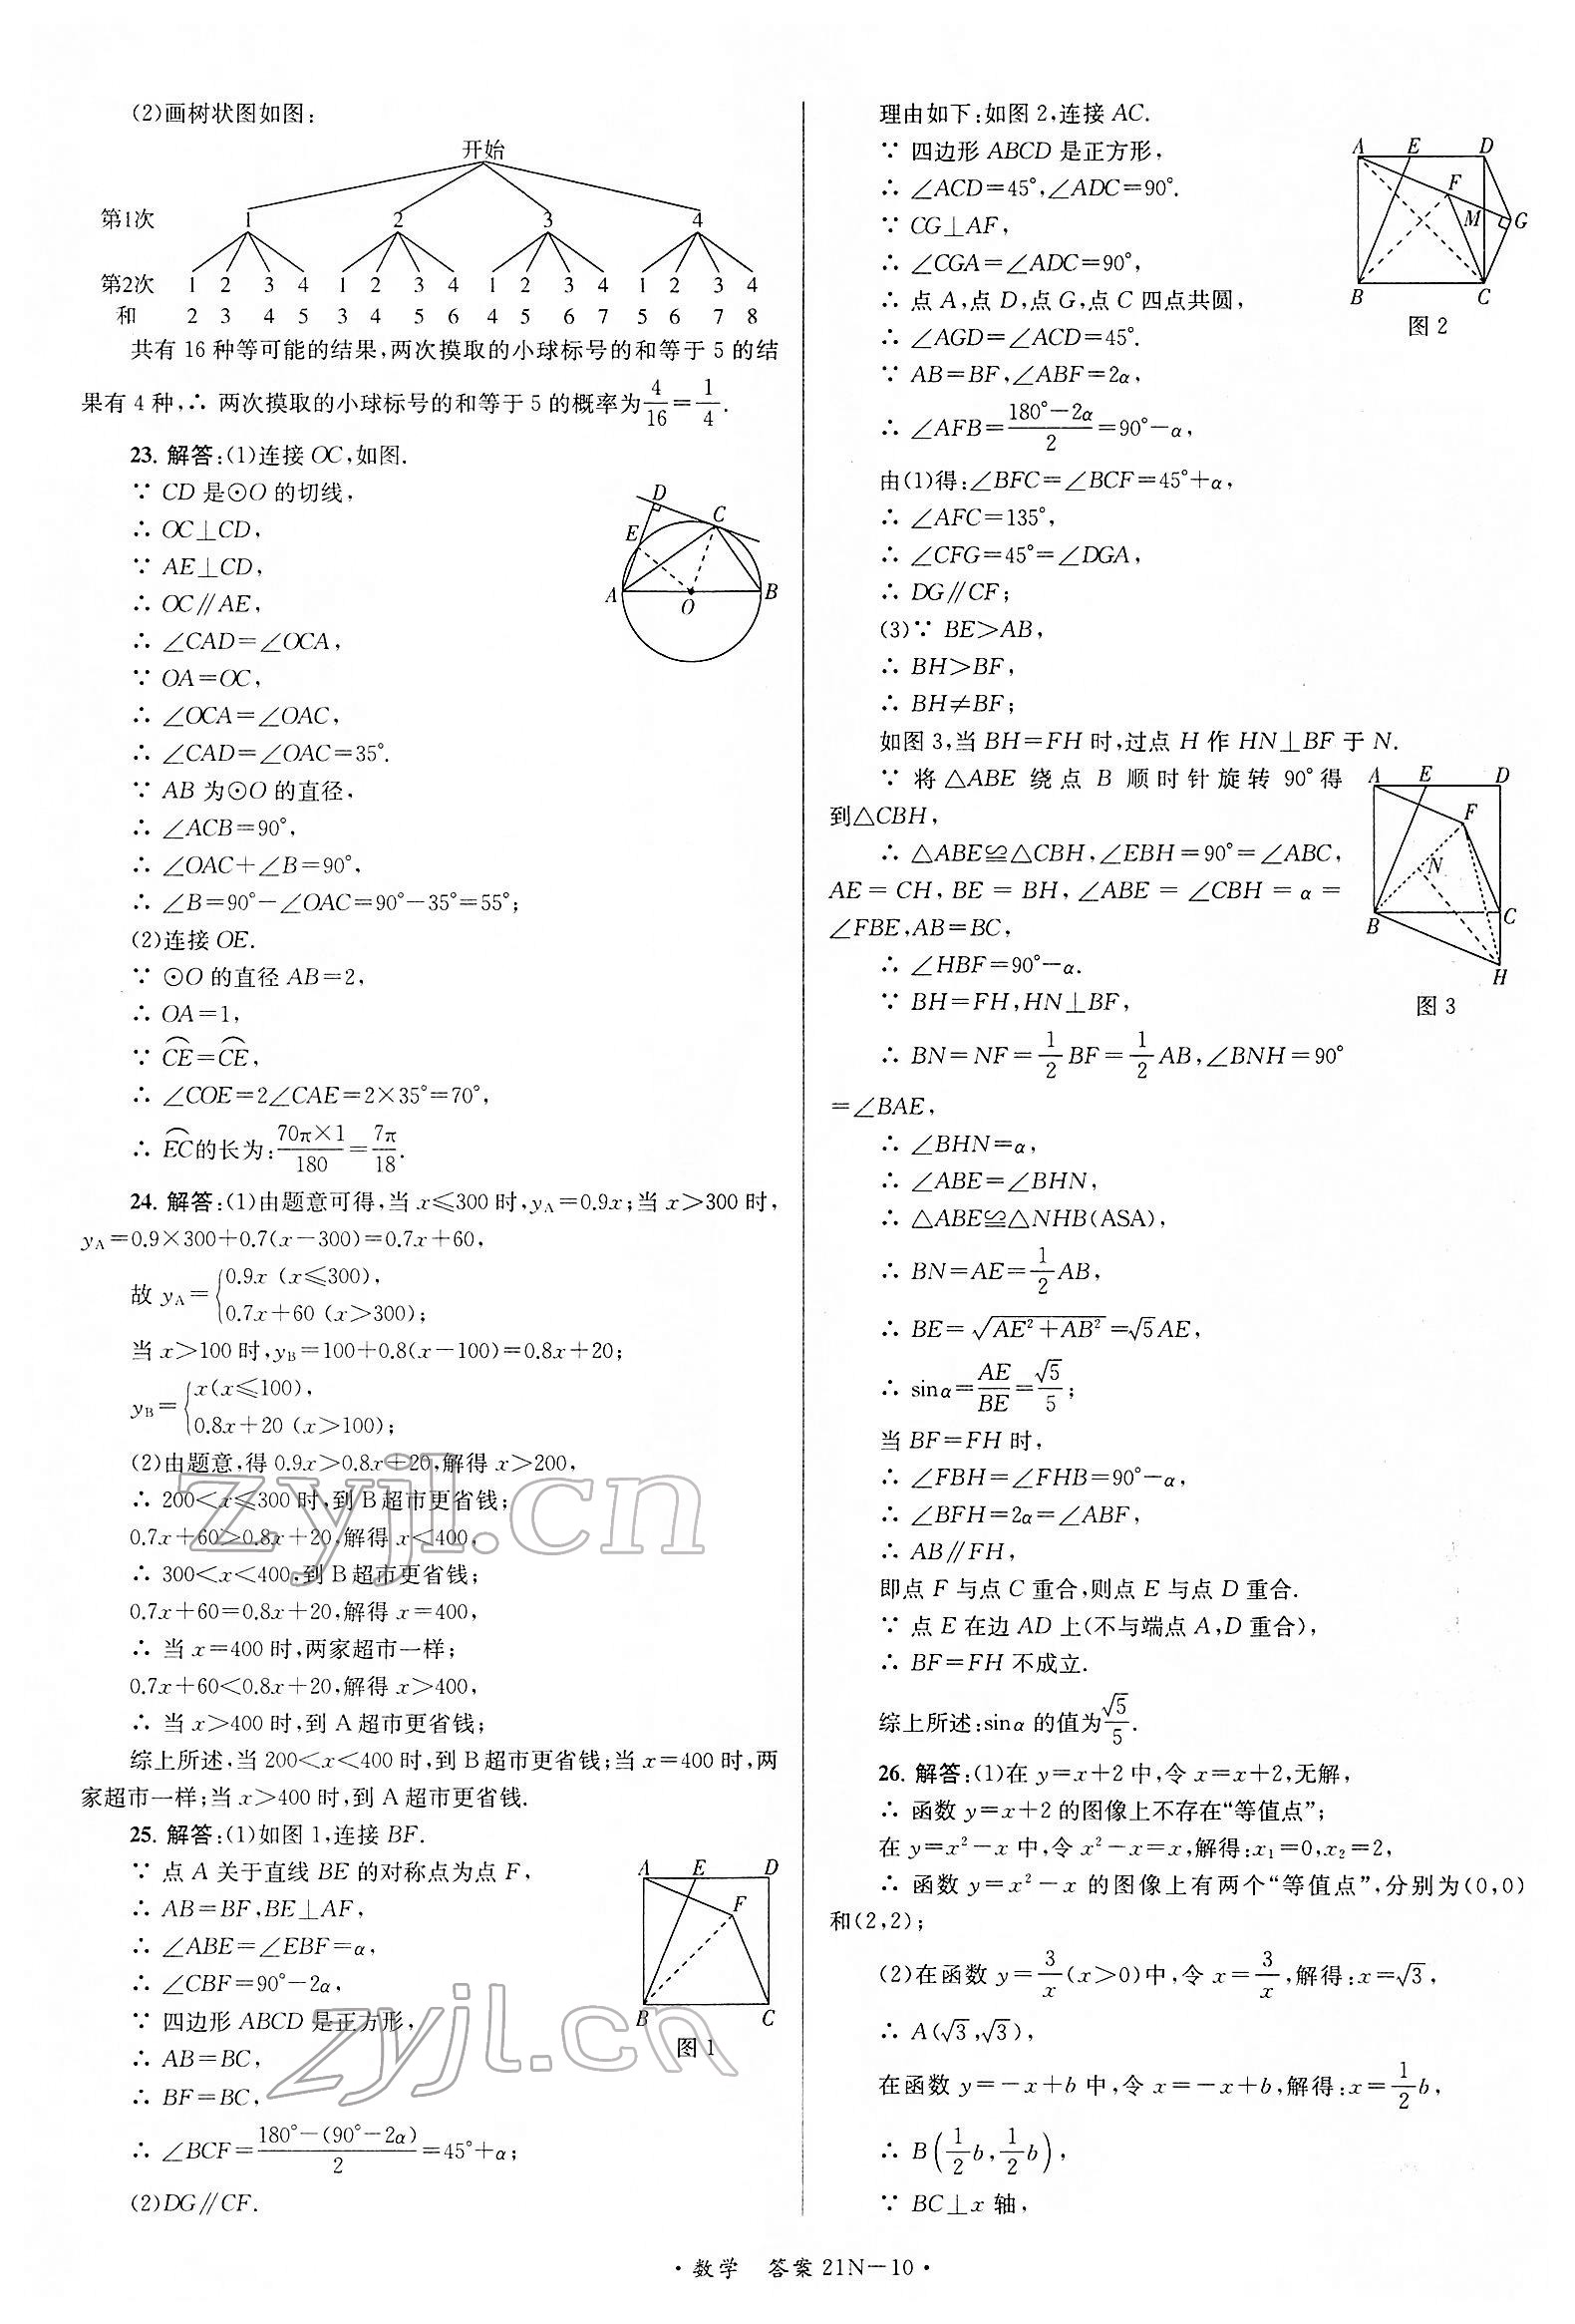 (2)画树状图如图:
开始
第1次 1 2 3 4
第2次 1 2 3 4 1 2 3 4 1 2 3 4 1 2 3 4
和 2 3 4 5 3 4 5 6 4 5 6 7 5 6 7 8
共有 16 种等可能的结果,两次摸取的小球标号的和等于 5 的结
果有 4 种,∴ 两次摸取的小球标号的和等于 5 的概率为4/16=1/4.
23. 解答:(1)连接 OC,如图.
∵ CD 是⊙O 的切线,
∴ OC⊥CD,
∵ AE⊥CD,
∴ OC∥AE,
∴ ∠CAD=∠OCA,
∵ OA=OC,
∴ ∠OCA=∠OAC,
∴ ∠CAD=∠OAC=35°.
∵ AB 为⊙O 的直径,
∴ ∠ACB=90°,
∴ ∠OAC+∠B=90°,
∴ ∠B=90°-∠OAC=90°-35°=55°;
D
C
E
A
O
B
(2)连接 OE.
∵ ⊙O 的直径 AB=2,
∴ OA=1,
∵ ⌒CE=⌒CE,
∴ ∠COE=2∠CAE=2×35°=70°,
∴ ⌒EC的长为:70π×1/180=7π/18.
24. 解答:(1)由题意可得,当 x≤300 时,yA=0.9x;当 x>300 时,
yA=0.9×300+0.7(x-300)=0.7x+60,
故 yA={0.9x (x≤300),
0.7x+60 (x>300);
当 x>100 时,yB=100+0.8(x-100)=0.8x+20;
yB={x(x≤100),
0.8x+20 (x>100);
(2)由题意,得 0.9x>0.8x+20,解得 x>200,
∴ 200<x≤300 时,到 B 超市更省钱;
0.7x+60>0.8x+20,解得 x<400,
∴ 300<x<400,到 B 超市更省钱;
0.7x+60=0.8x+20,解得 x=400,
∴ 当 x=400 时,两家超市一样;
0.7x+60<0.8x+20,解得 x>400,
∴ 当 x>400 时,到 A 超市更省钱;
综上所述,当 200<x<400 时,到 B 超市更省钱;当 x=400 时,两
家超市一样;当 x>400 时,到 A 超市更省钱.
zyjl.cn
25. 解答:(1)如图 1,连接 BF.
∵ 点 A 关于直线 BE 的对称点为点 F,
∴ AB=BF,BE⊥AF,
∴ ∠ABE=∠EBF=α,
∴ ∠CBF=90°-2α,
∵ 四边形 ABCD 是正方形,
∴ AB=BC,
∴ BF=BC,
∴ ∠BCF=180°-(90°-2α)/2=45°+α;
(2)DG∥CF.
A E D
F
B C
图 1
zyjl.cn
理由如下:如图 2,连接 AC.
∵ 四边形 ABCD 是正方形,
∴ ∠ACD=45°,∠ADC=90°.
∵ CG⊥AF,
∴ ∠CGA=∠ADC=90°,
∴ 点 A,点 D,点 G,点 C 四点共圆,
∴ ∠AGD=∠ACD=45°.
∵ AB=BF,∠ABF=2α,
∴ ∠AFB=180°-2α/2=90°-α,
由(1)得:∠BFC=∠BCF=45°+α,
∴ ∠AFC=135°,
∴ ∠CFG=45°=∠DGA,
∴ DG∥CF;
A E D
F
M G
B C
图 2
(3)∵ BE>AB,
∴ BH>BF,
∴ BH≠BF;
如图 3,当 BH=FH 时,过点 H 作 HN⊥BF 于 N.
∵ 将△ABE 绕点 B 顺时针旋转 90°得
到△CBH,
∴ △ABE≌△CBH,∠EBH=90°=∠ABC,
AE=CH,BE=BH,∠ABE=∠CBH=α=
∠FBE,AB=BC,
∴ ∠HBF=90°-α.
∵ BH=FH,HN⊥BF,
∴ BN=NF=1/2BF=1/2AB,∠BNH=90°
=∠BAE,
A E D
F
N
B C
H
图 3
∴ ∠BHN=α,
∴ ∠ABE=∠BHN,
∴ △ABE≌△NHB(ASA),
∴ BN=AE=1/2AB,
∴ BE=√(AE²+AB²)=√5AE,
∴ sinα=AE/BE=√5/5;
当 BF=FH 时,
∴ ∠FBH=∠FHB=90°-α,
∴ ∠BFH=2α=∠ABF,
∴ AB∥FH,
即点 F 与点 C 重合,则点 E 与点 D 重合.
∵ 点 E 在边 AD 上(不与端点 A,D 重合),
∴ BF=FH 不成立.
综上所述:sinα 的值为√5/5.
26. 解答:(1)在 y=x+2 中,令 x=x+2,无解,
∴ 函数 y=x+2 的图像上不存在“等值点”;
在 y=x²-x 中,令 x²-x=x,解得:x₁=0,x₂=2,
∴ 函数 y=x²-x 的图像上有两个“等值点”,分别为(0,0)
和(2,2);
(2)在函数 y=3/x(x>0)中,令 x=3/x,解得:x=√3,
∴ A(√3,√3),
在函数 y=-x+b 中,令 x=-x+b,解得:x=1/2b,
∴ B(1/2b,1/2b),
∵ BC⊥x 轴,
·数学 答案 21N-10·